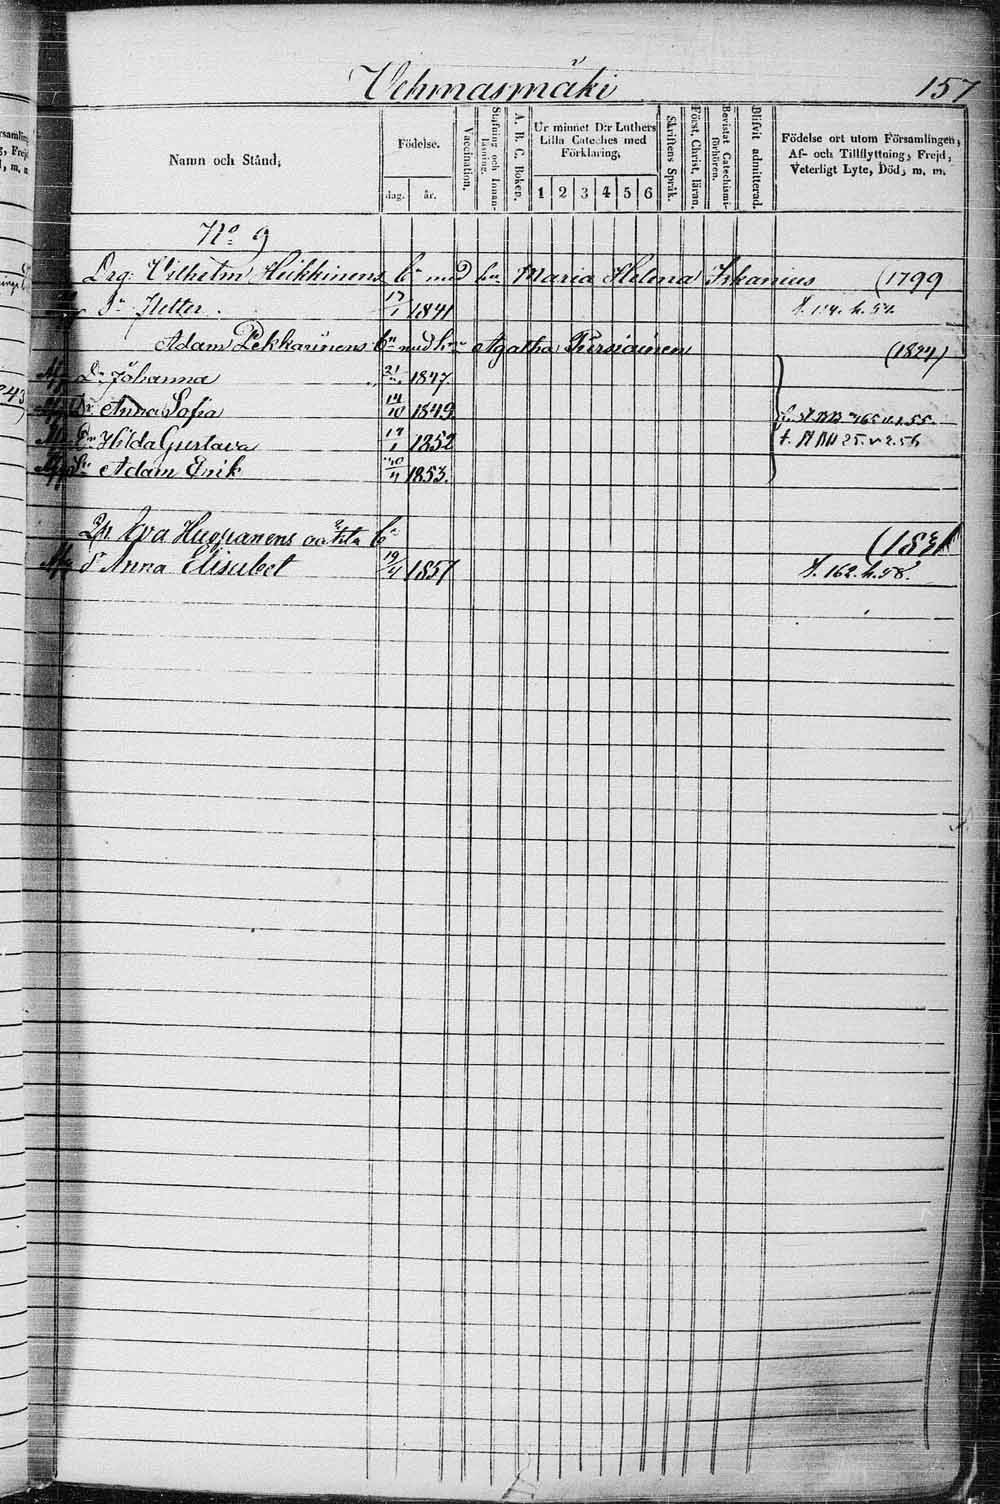 Vehmasmäki 157
Namn och Stånd;
Födelse.
dag. år.
Vaccination.
Stafning och Innanläsning.
A. B. C. Boken.
Ur minnet D:r Luthers Lilla Cateches med Förklaring,
1 2 3 4 5 6
Skriftens Språk.
Först. Christ. läran.
Bevistat Catechismiförhören.
Blifvit admitterad.
Födelse ort utom Församlingen,
Af- och Tillflyttning, Frejd,
Veterligt Lyte, Död, m. m.
No 9
Drg: Vilhelm Heikkinens bn med hu Maria Helena (1799)
Sn Petter 17/1 1841
Adam Pekkarinens bn med hu Agatha Pursiainen (1824)
Dr Johanna 21 1847.
Dr Anna Sofia 14/10 1849.
Dr Hilda Gustava 17/1 1852
Sn Adam Erik 1853.
Eva Huppanens oäkta bn (1831)
Dr Anna Elisabet 19 1857 f. 162. h. 58.